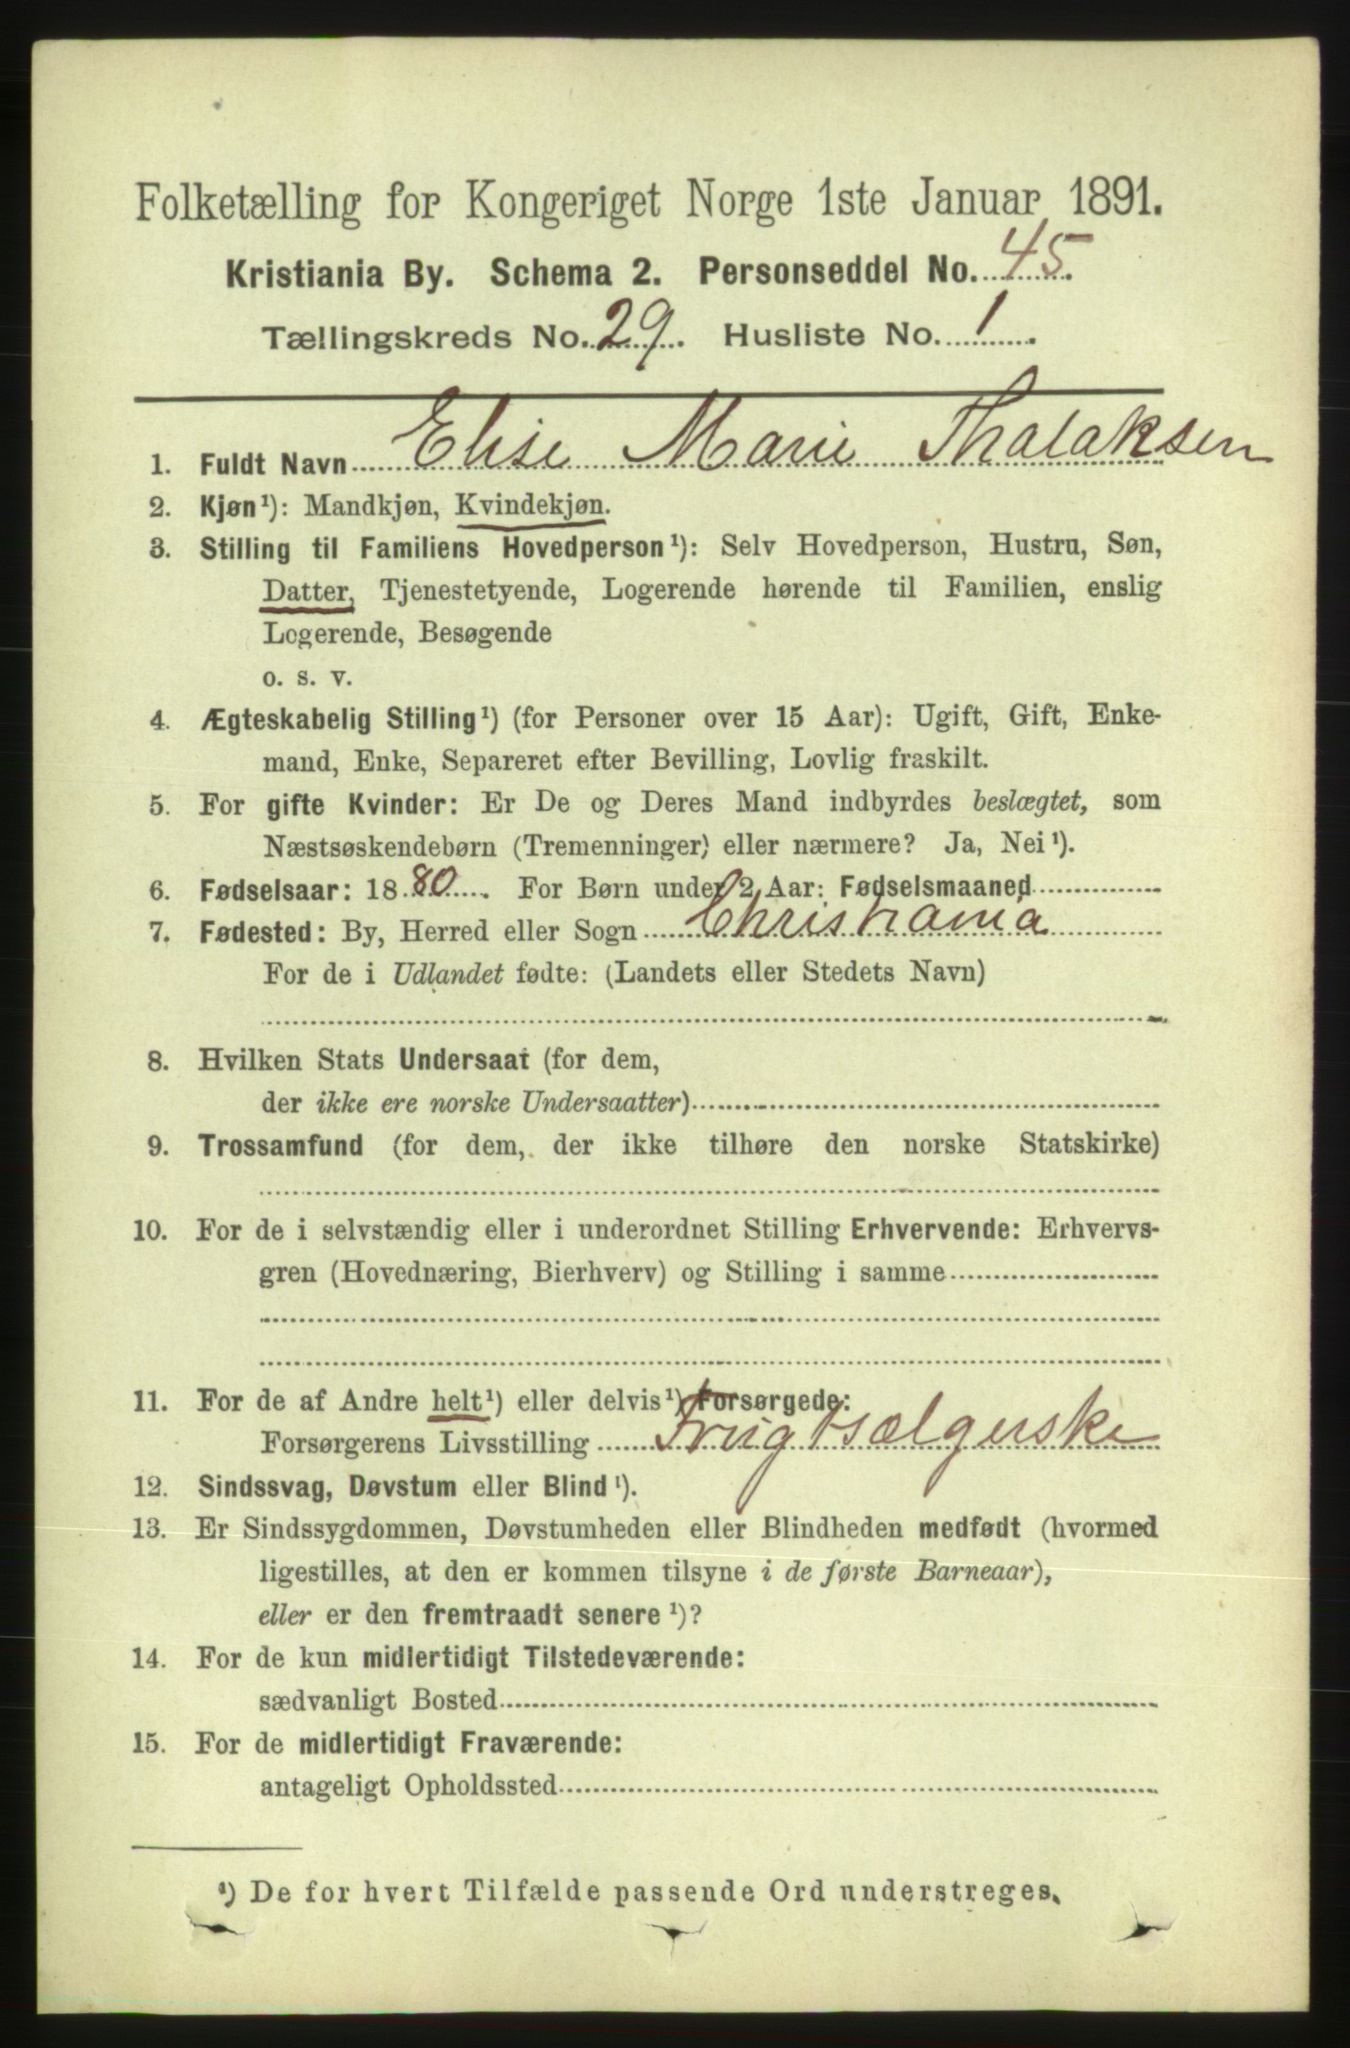 Folketælling for Kongeriget Norge 1ste Januar 1891.
Kristiania By. Schema 2. Personseddel No. 45.
Tællingskreds No. 29. Husliste No. 1.
1. Fuldt Navn Elise Marie Thalaksen
2. Kjøn¹): Mandkjøn, Kvindekjøn.
3. Stilling til Familiens Hovedperson¹): Selv Hovedperson, Hustru, Søn,
Datter, Tjenestetyende, Logerende hørende til Familien, enslig
Logerende, Besøgende
o. s. v.
4. Ægteskabelig Stilling¹) (for Personer over 15 Aar): Ugift, Gift, Enke-
mand, Enke, Separeret efter Bevilling, Lovlig fraskilt.
5. For gifte Kvinder: Er De og Deres Mand indbyrdes beslægtet, som
Næstsøskendebørn (Tremenninger) eller nærmere? Ja, Nei¹).
6. Fødselsaar: 1880. For Børn under 2 Aar: Fødselsmaaned
7. Fødested: By, Herred eller Sogn Christiania
For de i Udlandet fødte: (Landets eller Stedets Navn)
8. Hvilken Stats Undersaat (for dem,
der ikke ere norske Undersaatter)
9. Trossamfund (for dem, der ikke tilhøre den norske Statskirke)
10. For de i selvstændig eller i underordnet Stilling Erhvervende: Erhvervs-
gren (Hovednæring, Bierhverv) og Stilling i samme
11. For de af Andre helt¹) eller delvis¹) Forsørgede:
Forsørgerens Livsstilling Frugtsælgerske
12. Sindssvag, Døvstum eller Blind¹).
13. Er Sindssygdommen, Døvstumheden eller Blindheden medfødt (hvormed
ligestilles, at den er kommen tilsyne i de første Barneaar),
eller er den fremtraadt senere¹)?
14. For de kun midlertidigt Tilstedeværende:
sædvanligt Bosted
15. For de midlertidigt Fraværende:
antageligt Opholdssted
¹) De for hvert Tilfælde passende Ord understreges.